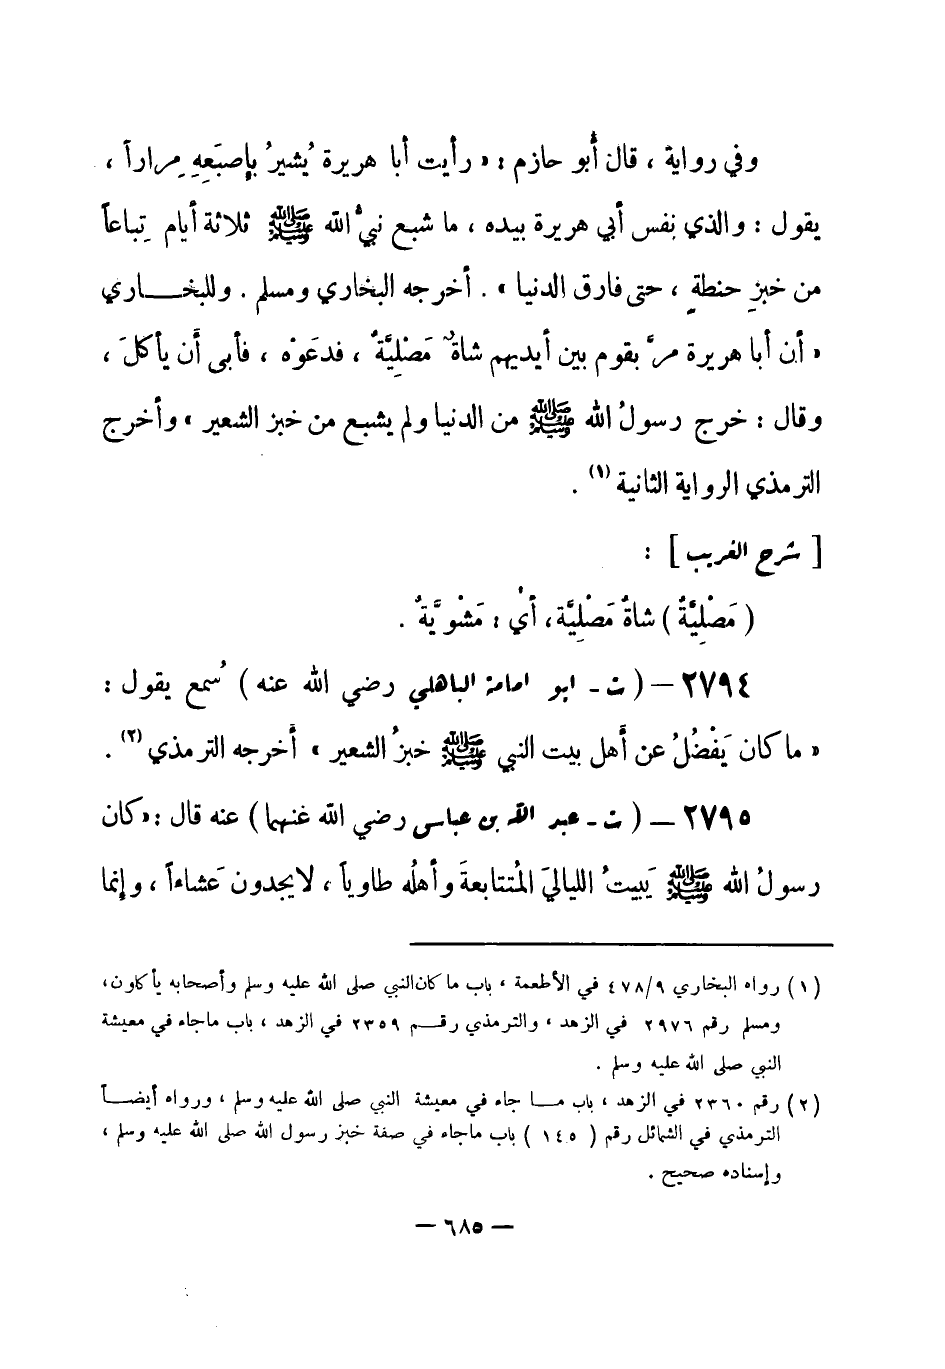 وفي رواية ، قال أبو حازم : « رأيت أبا هريرة يُشيرُ بإصبَعِهِ مِراراً ،
يقول : والذي نفس أبي هريرة بيده ، ما شبع نبيُّ الله ﷺ ثلاثة أيام تِباعاً
من خبزِ حنطةٍ ، حتى فارق الدنيا » . أخرجه البخاري ومسلم . وللبخــاري
« أن أبا هريرة مرَّ بقوم بين أيديهم شاةٌ مَصْلِيَّةٌ ، فدعَوْه ، فأبى أن يأكلَ ،
وقال : خرج رسولُ الله ﷺ من الدنيا ولم يشبع من خبز الشعير » وأخرج
الترمذي الرواية الثانية (١) .
[ شرح الغريب ] :
( مَصْلِيَّةٌ ) شاةٌ مَصْلِيَّة، أيْ : مَشْوِيَّةٌ .
٢٧٩٤ – ( ت - ابو امامة الباهلي رضي الله عنه ) سُمع يقول :
« ما كان يَفْضُلُ عن أهل بيت النبي ﷺ خبزُ الشعير » أخرجه الترمذي (٢) .
٢٧٩٥ – ( ت - عبد الله بن عباس رضي الله عنهما ) عنه قال : « كان
رسولُ الله ﷺ يَبيتُ الليالي المُتتابعةَ وأهلُه طاوياً ، لايجدون عَشاءاً ، وإنما
(١) رواه البخاري ٤٧٨/٩ في الأطعمة ، باب ما كان النبي صلى الله عليه وسلم وأصحابه يأكلون،
ومسلم رقم ٢٩٧٦ في الزهد ، والترمذي رقـم ٢٣٥٩ في الزهد ، باب ماجاء في معيشة
النبي صلى الله عليه وسلم .
(٢) رقم ٢٣٦٠ في الزهد ، باب مـا جاء في معيشة النبي صلى الله عليه وسلم ، ورواه أيضـاً
الترمذي في الشمائل رقم ( ١٤٥ ) باب ماجاء في صفة خبز رسول الله صلى الله عليه وسلم ،
وإسناده صحيح .
— ٦٨٥ —